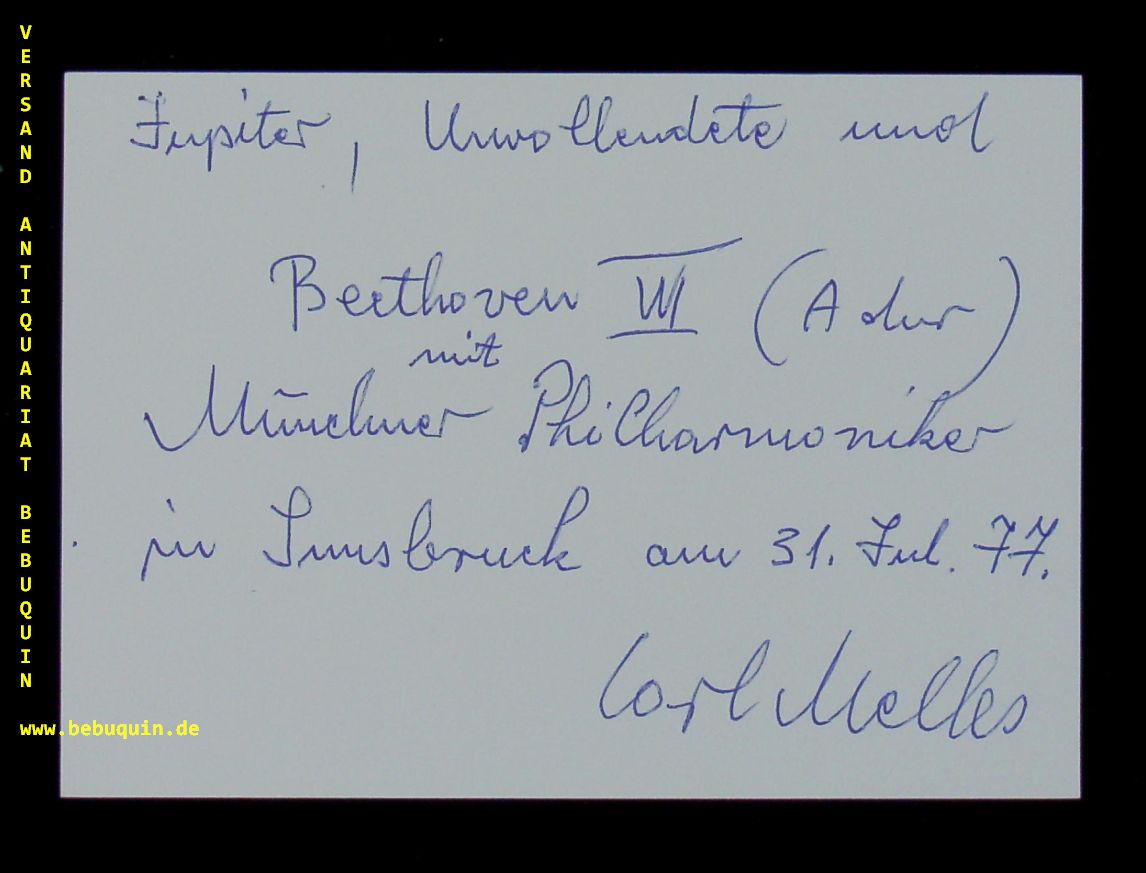 Jupiter, Unvollendete und
Beethoven VII (A dur)
mit
Münchner Philharmoniker
in Innsbruck am 31. Jul. 77.
Carl Melles
VERSAND ANTIQUARIAT BEBUQUIN
www.bebuquin.de